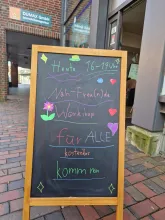 Heute 16-19 Uhr
Näh-Freu(n)de
Workshop
für ALLE
kostenlos
komm rein